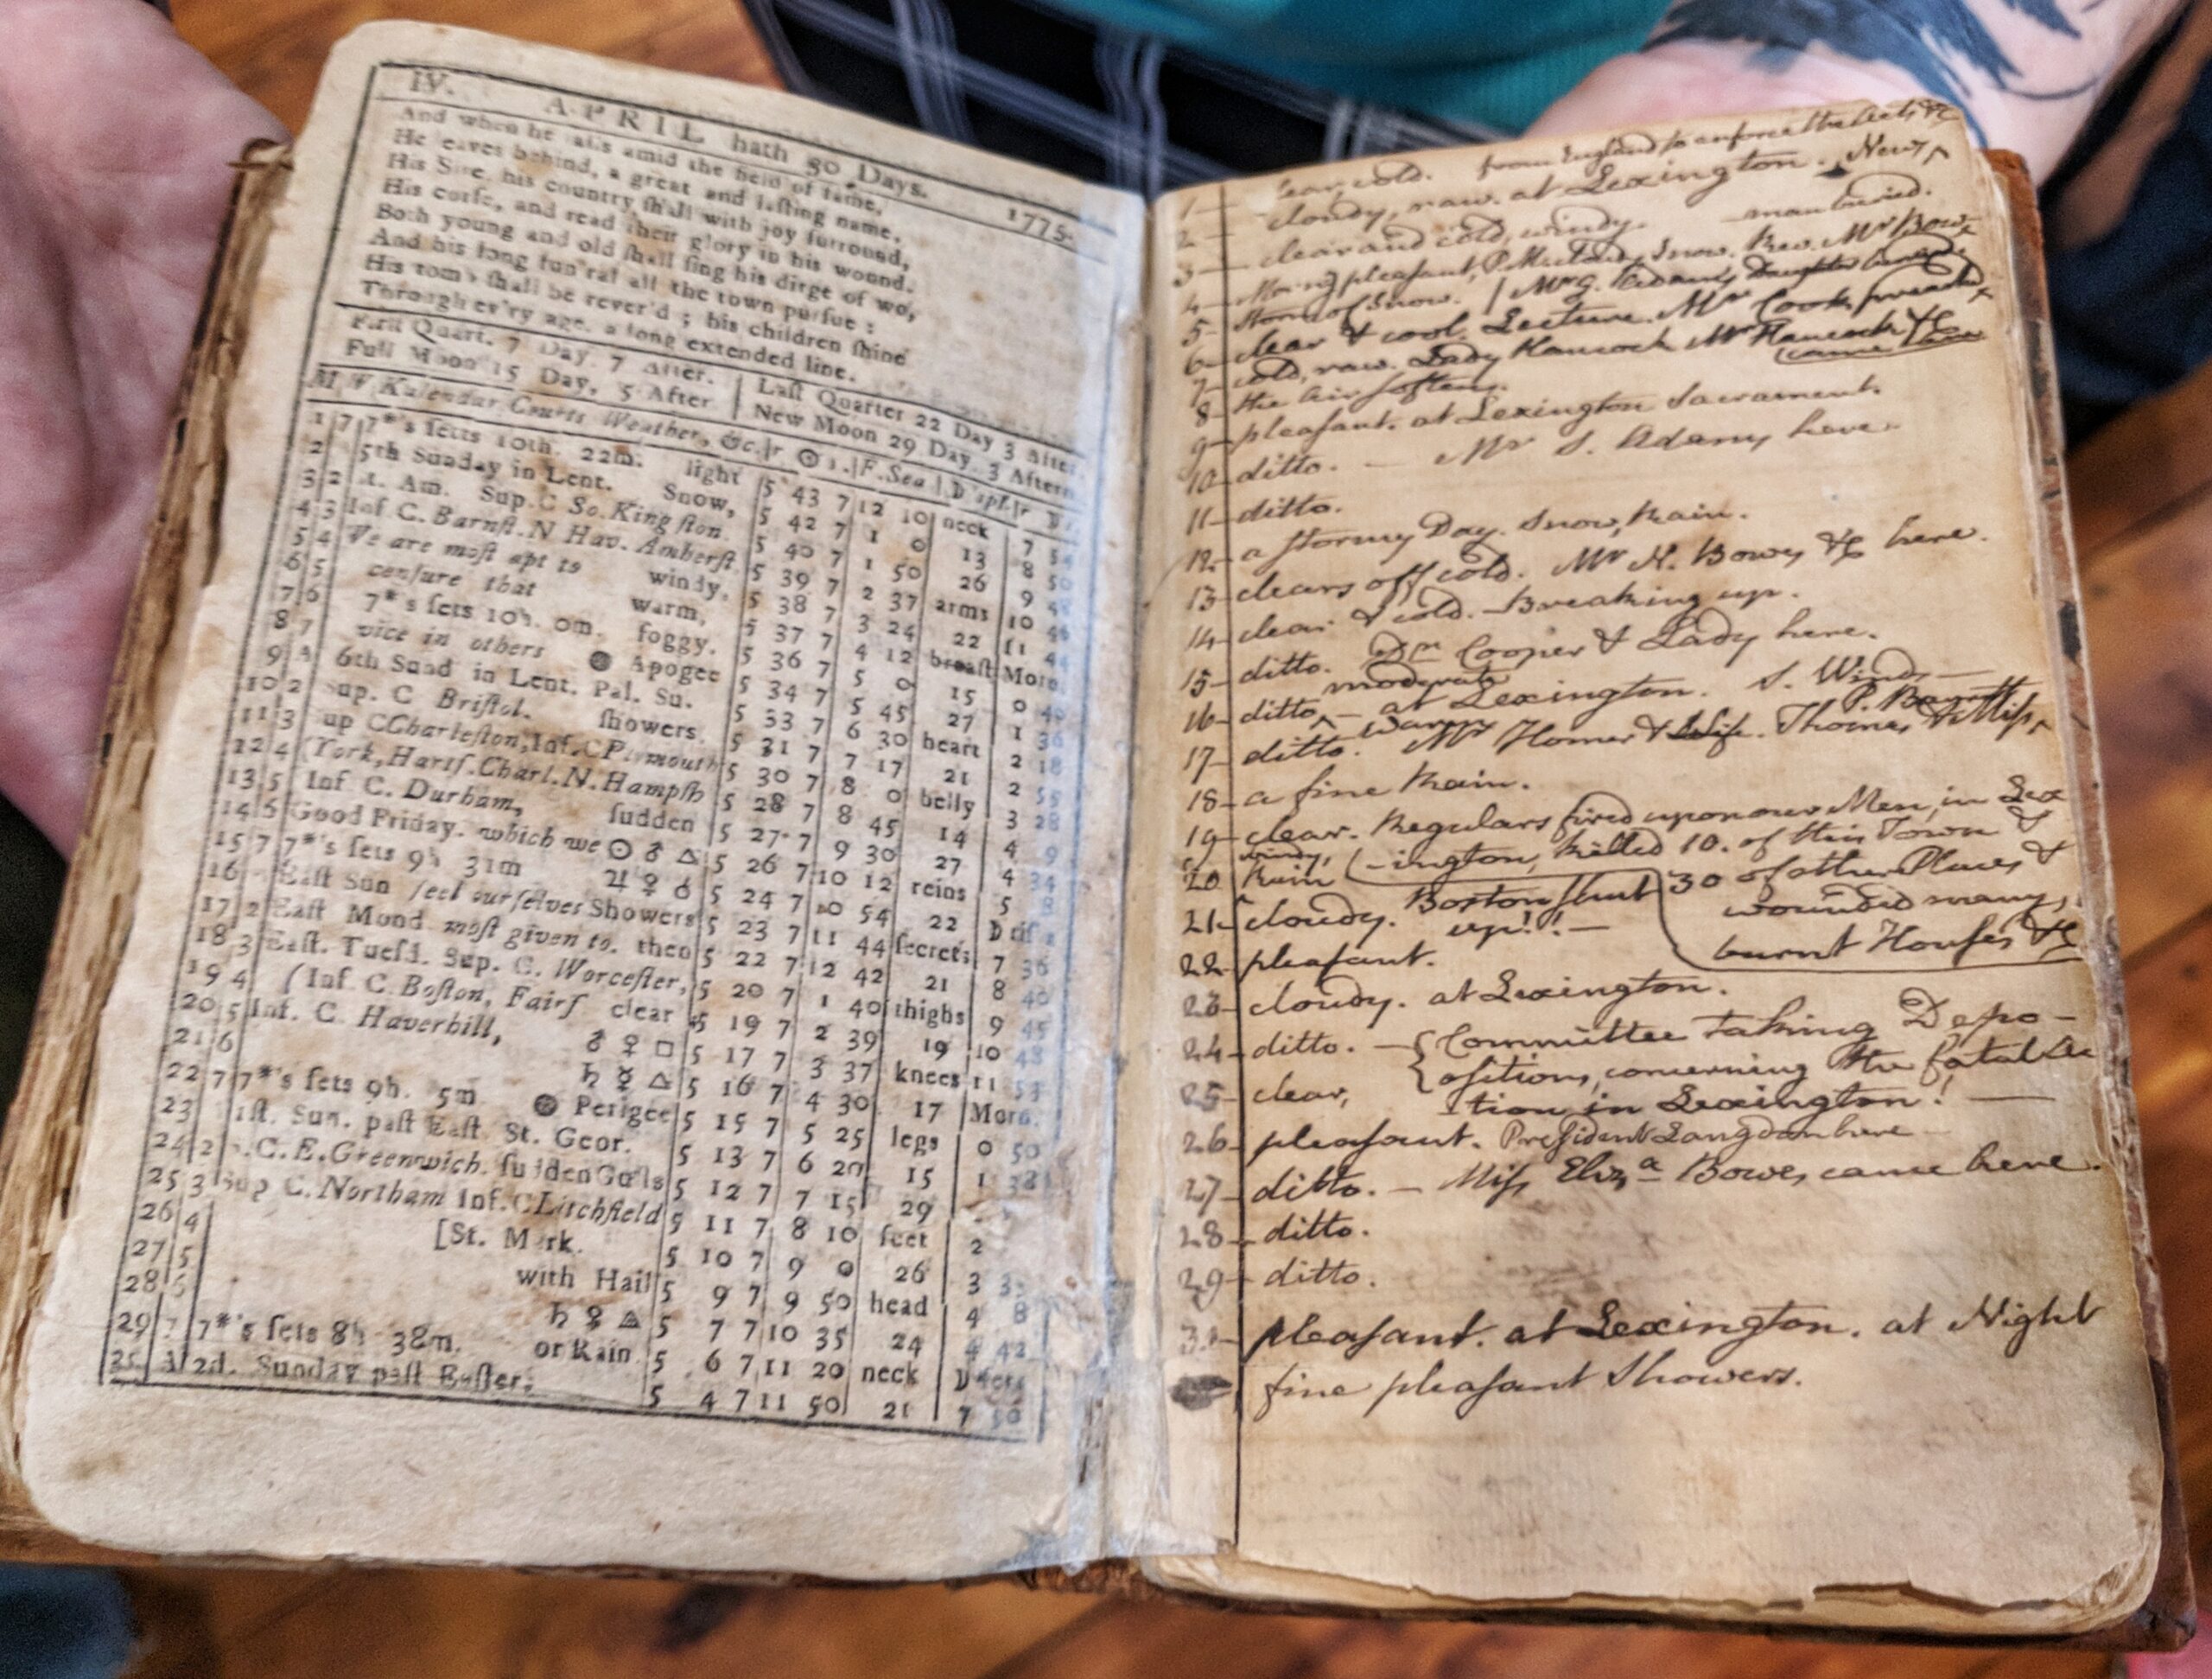 IV. APRIL hath 30 Days. 1775.
And when he falls amid the field of fame,
He leaves behind, a great and lasting name,
His Sire, his country shall with joy surround,
His corse, and read their glory in his wound.
Both young and old shall sing his dirge of wo,
And his long fun'ral all the town pursue;
His tomb shall be rever'd; his children shine
Through ev'ry age, a long extended line.
First Quart. 7 Day. 7 After. | Last Quarter 22 Day 3 After.
Full Moon 15 Day, 5 After | New Moon 29 Day. 3 Aftern.
M W Kalendar Courts Weather, &c. r ☉ s. F. Sea D's pl.
1 7 7*'s setts 10th. 22m. light 5 43 7 12 10 neck 7
2 5th Sunday in Lent. Snow, 5 42 7 1 0 13 8 50
3 2 Am. Sup. C So. Kingston. 5 40 7 1 50 26 9
4 3 Inf C. Barnst. N Hav. Amherst 5 39 7 2 37 arms 10
5 4 We are most apt to windy, 5 38 7 3 24 22 11
6 5 censure that warm, 5 37 7 4 12 breast Morn.
7 6 7*'s sets 10h. 0m. foggy. 5 36 7 5 0 15 0 40
8 7 vice in others Apogee 5 34 7 5 45 27 1 36
9 A 6th Sund in Lent. Pal. Su. 5 33 7 6 30 heart 2 18
10 2 Sup. C Bristol. showers. 5 31 7 7 17 21 2 55
11 3 Sup C Charleston, Inf. C Plymouth 5 30 7 8 0 belly 3 28
12 4 (York, Hartf. Charl. N. Hampsh 5 28 7 8 45 14 4 9
13 5 Inf C. Durham, sudden 5 27 7 9 30 27 4 34
14 6 Good Friday. which we ☉ ♂ △ 5 26 7 10 12 reins 5 8
15 7 7*'s sets 9h 31m ♃ ♀ ☌ 5 24 7 10 54 22 D rise
16 East Sun feel ourselves Showers 5 23 7 11 44 secrets 7 36
17 2 East Mond most given to. then 5 22 7 12 42 21 8 40
18 3 East. Tuesd. Sup. C. Worcester, 5 20 7 1 40 thighs 9 45
19 4 (Inf C. Boston, Fairf clear 5 19 7 2 39 19 10 48
20 5 Inf. C. Haverhill, ♂ ♀ □ 5 17 7 3 37 knees 11 53
21 6 ♄ ☿ △ 5 16 7 4 30 17 Morn.
22 7 7*'s sets 9h. 5m Perigee 5 15 7 5 25 legs 0 50
23 1st. Sun. past East. St. Geor. 5 13 7 6 20 15 1
24 2 C. E. Greenwich. sudden Gusts 5 12 7 7 15 29
25 3 Sup C. Northam Inf. C Litchfield 5 11 7 8 10 feet 2
26 4 [St. Mark. 5 10 7 9 0 26 3
27 5 with Hail 5 9 7 9 50 head 4 8
28 6 ♄ ♀ △ 5 7 7 10 35 24 4 42
29 7 7*'s sets 8h 38m. or Rain 5 6 7 11 20 neck D sets
A 2d. Sunday past Easter. 5 4 7 11 50 21 7 50
from England to enforce the Acts &c
1 clear, cold.
2 cloudy, raw. at Lexington. News
3 clear and cold, windy. man buried.
4 Morng pleasant, P. M. Snow. Rev. Mr Bowes
5 storm of Snow. Mr Adams Daughter
6 clear & cool. Lecture. Mr Cook preach'd
7 cold, raw. Lady Hancock Mr Hancock &c came
8 the air softens.
9 pleasant. at Lexington Sacrament.
10 ditto. — Mr S. Adams here.
11 ditto.
12 a stormy Day. Snow, Rain.
13 clears off cold. Mr N. Bowes &c here.
14 clear & cold. Breaking up.
15 ditto. Dr Cooper & Lady here.
16 ditto, moderate — at Lexington. S. Wind —
17 ditto. warm Mr Homer & Wife. Thomas & Miss P. Barrett
18 a fine Rain.
19 clear. Regulars fired upon our Men, in Lex
windy, -ington, killed 10. of this Town &
20 Rain 30 of other Places &
21 cloudy. Boston shut up!! — wounded many,
burnt Houses &c
22 pleasant.
23 cloudy. at Lexington.
24 ditto. — { Committee taking Depo-
25 clear, ositions, concerning the fatal Ac
tion in Lexington! —
26 pleasant. President Langdon here
27 ditto. — Miss Eliza Bowes came here.
28 ditto.
29 ditto.
30 pleasant. at Lexington. at Night
fine pleasant Showers.